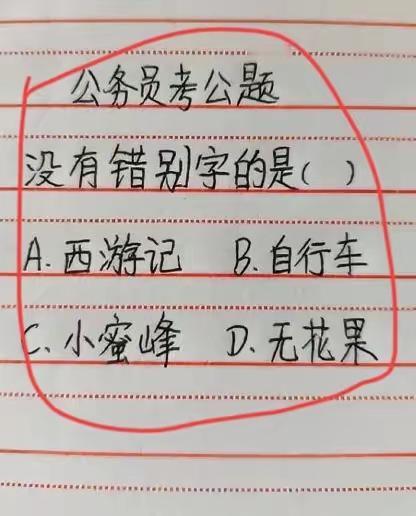 公务员考公题
没有错别字的是( )
A. 西游记 B. 自行车
C. 小蜜峰 D. 无花果